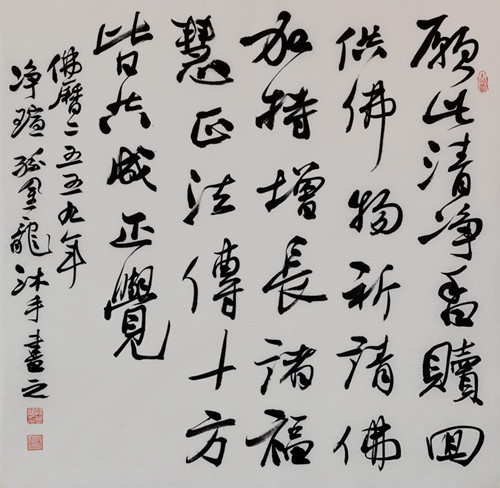 願此清净香贖回
供佛物祈請佛
加持增長諸福
慧正法傳十方
皆共成正覺
佛曆二五五九年
净瑄龍沐手書之